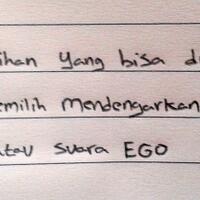 ihan yang bisa di
emilih mendengarkan
atau suara EGO